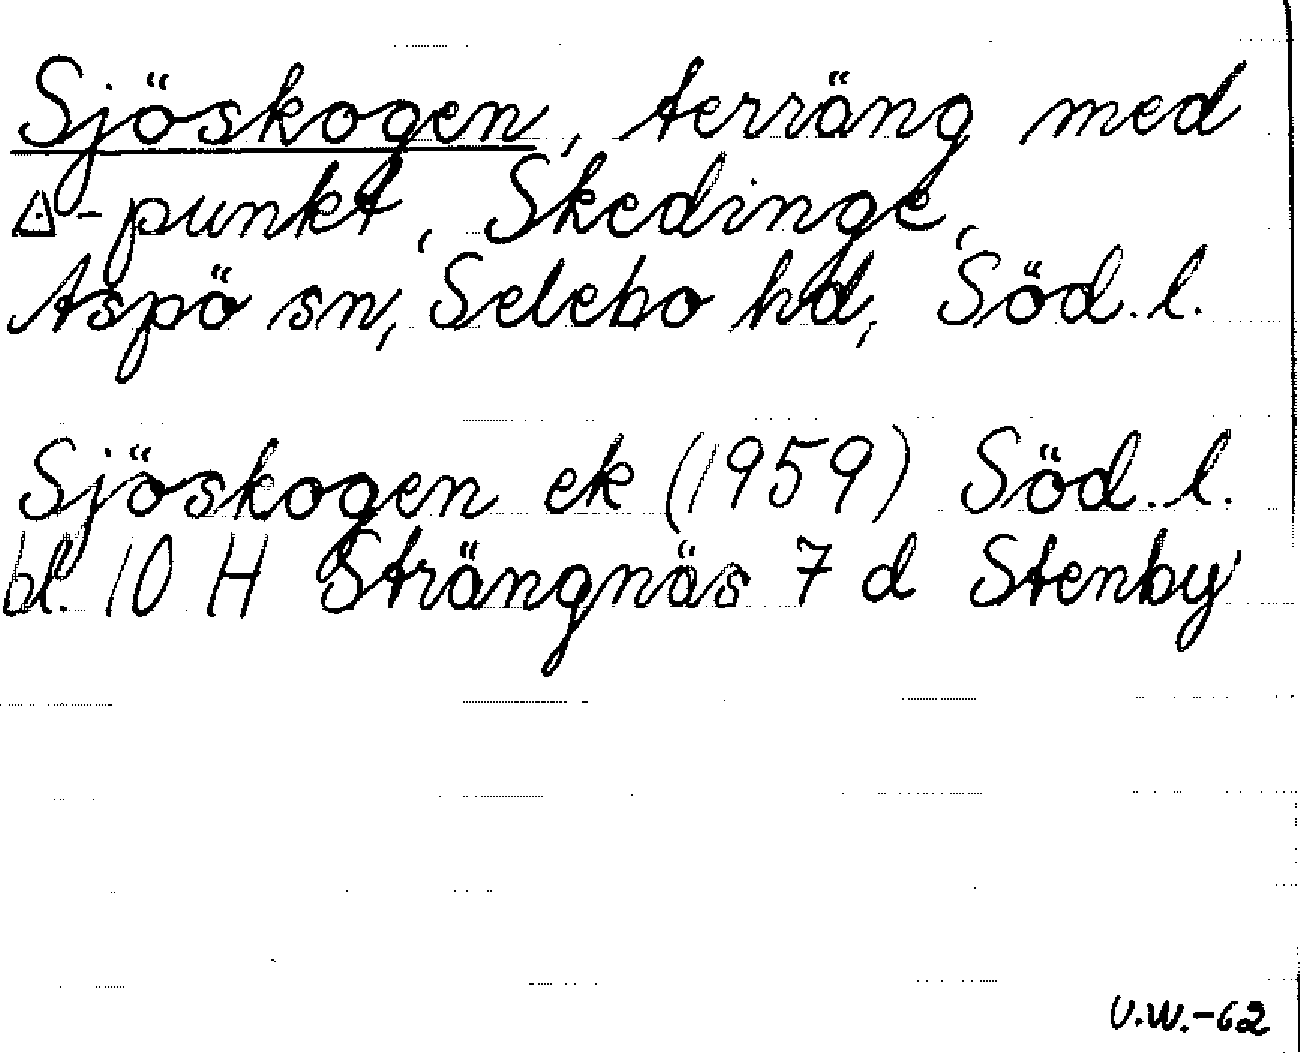 Sjöskogen, terräng med
△-punkt, Skedinge,
Aspö sn, Selebo hd, Söd. l.
Sjöskogen ek (1959) Söd. l.
bl. 10 H Strängnäs 7 d Stenby
U.W.-62